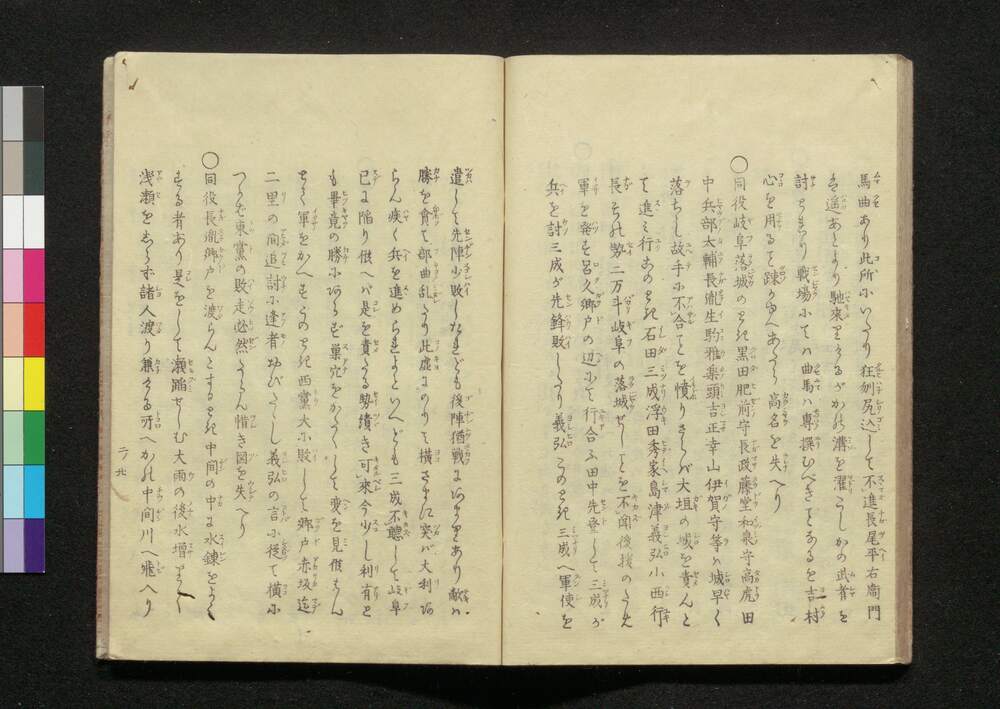 馬曲あり此所にいたり狂刎尻込して不進長尾平右衛門
を遥あとより馳來りける が彼溝を濯こしかの武者を
討とりたり戦場にては曲馬ハ専撰むべきことあるを吉村
心を用ること踈かゆへあたら高名を失へり
○同役岐阜落城のとき黒田肥前守長政藤堂和泉守高虎田
中兵部太輔長胤生駒雅楽頭吉正幸山伊賀守等ハ城早く
落ちし故手に不合ことを憤りさらバ大垣の城を責んと
て進ミ行このとき石田三成浮田秀家島津義弘小西行
長その勢二万斗岐阜の落城せしことを不聞後援のため
軍を発す呂久郷戸の辺にて行合ふ田中先登して三成が
兵を討三成が先鋒敗しけり義弘このとき三成へ軍使を
遣して先陣少敗したれども後陣猶戦にあまりあり敵ハ
勝を貪て部曲乱たり此虚にのりて横さまに突バ大利あ
らん疾く兵を進めらるよといへども三成不聴して岐阜
已に陥り候へバ是を責たる勢續き可來今少し利有と
も畢竟の勝にあらず巣穴をかたくして変を見候はん
とて軍をかへすこのとき西黨大に敗して郷戸赤坂迄
二里の間追討に逢者おびたゝし義弘の言に従て横に
つかば東黨の敗走必然たらん惜き図を失へり
○同役長胤郷戸を渡らんとするとき中間の中に水錬をよく
する者あり是をして瀬踊せしむ大雨の後水増りよく
浅瀬をしらず諸人渡り兼たる所へかの中間川へ飛へり
二ノ北